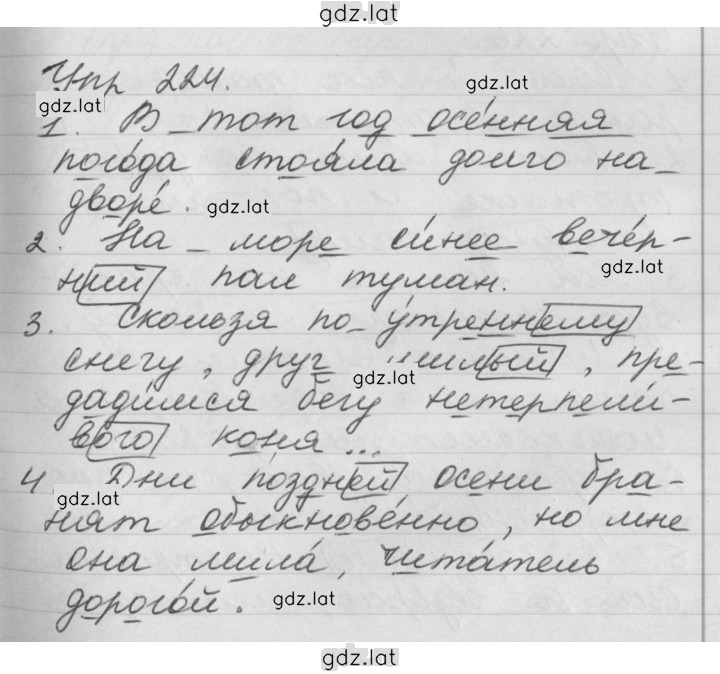 gdz.lat
Упр 224.
gdz.lat
gdz.lat
1. В тот год осе́нняя
пого́да стоя́ла долго на
дворе́.
gdz.lat
2. На море си́нее вече́р-
ний пал туман.
gdz.lat
3. Скользя по у́треннему
снегу, друг милый, пре-
gdz.lat
дади́мся бегу нетерпели́-
вого коня...
4 Дни поздней осени бра-
gdz.lat
нят обыкнове́нно, но мне
она мила́, чита́тель
дорого́й.
gdz.lat
gdz.lat